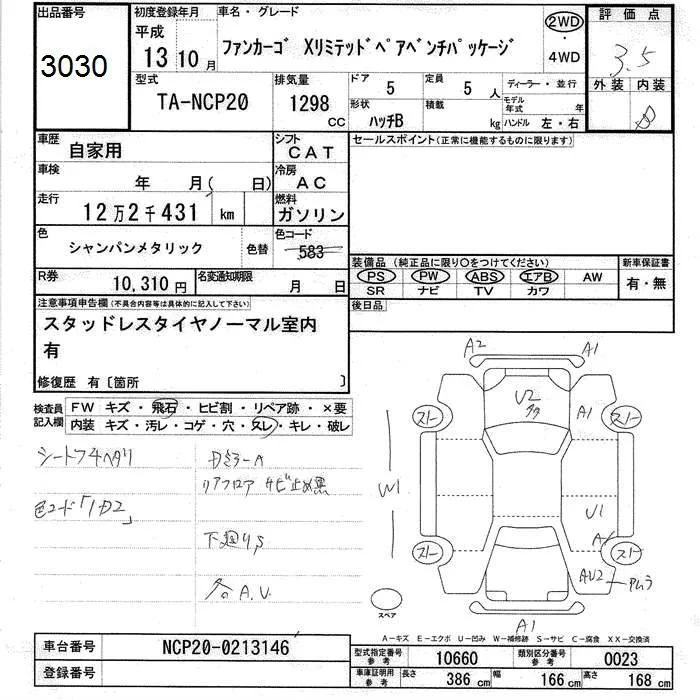 出品番号
3030
初度登録年月
平成
13 10月
車名・グレード
ファンカーゴ Xリミテッドペアベンチパッケージ
2WD
・
4WD
評価点
3.5
外装 内装
B
型式
TA-NCP20
排気量
1298
CC
ドア
5
定員
5 人
ディーラー・並行
形状
ハッチB
積載
kg
モデル年式 年
ハンドル 左・右
車歴
自家用
シフト
CAT
セールスポイント(正常に機能するものに限ります)
車検
年 月( 日)
冷房
AC
走行
12万2千431 km
燃料
ガソリン
色
シャンパンメタリック
色替
色コード
583
装備品(純正品に限り○をつけてください)
PS PW ABS エアB AW
SR ナビ TV カワ
新車保証書
有・無
R券
10,310円
名変通知期限
月 日
後日品
注意事項申告欄(不具合内容等は具体的に記入して下さい)
スタッドレスタイヤノーマル室内
有
修復歴 有〔箇所 〕
検査員
記入欄
FW キズ・飛石・ヒビ割・リペア跡・×要
内装 キズ・汚レ・コゲ・穴・ヌレ・キレ・破レ
シートフ4ヘタリ
色コード「1D2」
Dミラー A
リアフロア サビ止め黒
下廻りS
各A.U.
A2
A1
U2
A1
W1
U1
A1
AU2
A1
スト
スト
スト
スト
スペア
A-キズ E-エクボ U-凹み W-補修跡 S-サビ C-腐食 XX-交換済
車台番号
NCP20-0213146
登録番号
型式指定番号
参考
10660
類別区分番号
参考
0023
車庫証明用
参考
長さ 386 cm
幅 166 cm
高さ 168 cm